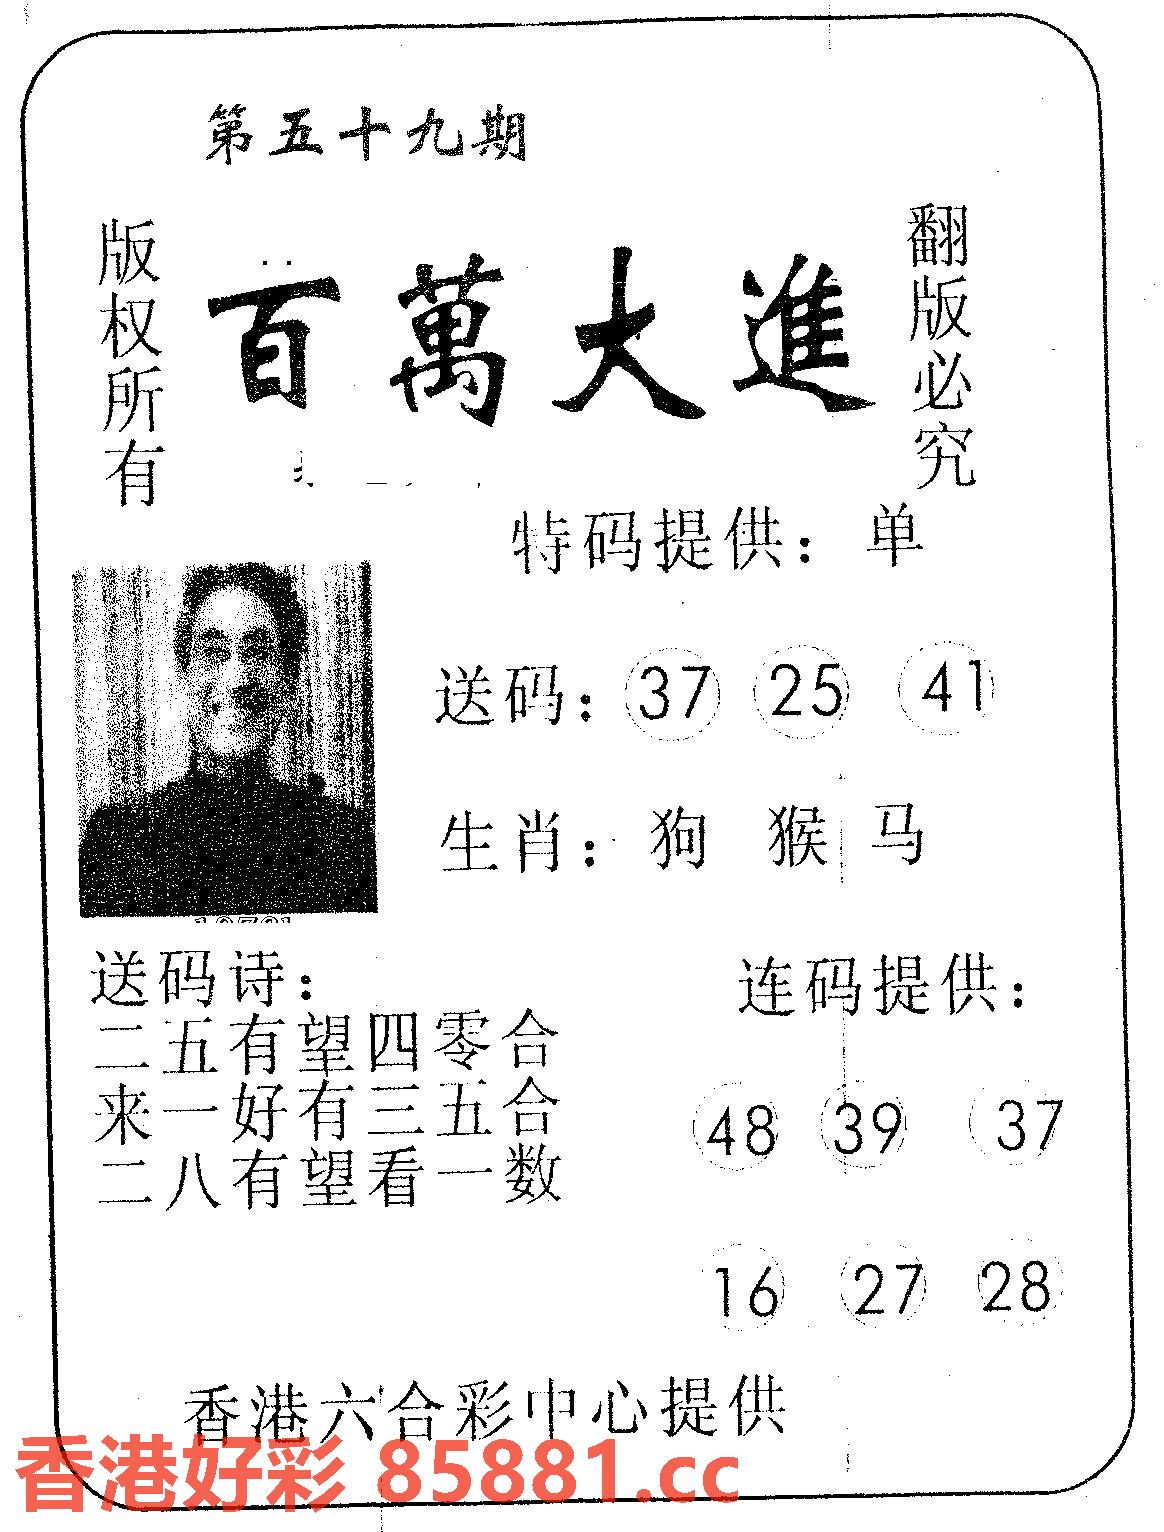 第五十九期
版权所有
百萬大進
翻版必究
特码提供：单
送码：37 25 41
生肖：狗 猴 马
送码诗：
二五有望四零合
来一好有三五合
二八有望看一数
连码提供：
48 39 37
16 27 28
香港六合彩中心提供
香港好彩 85881.cc